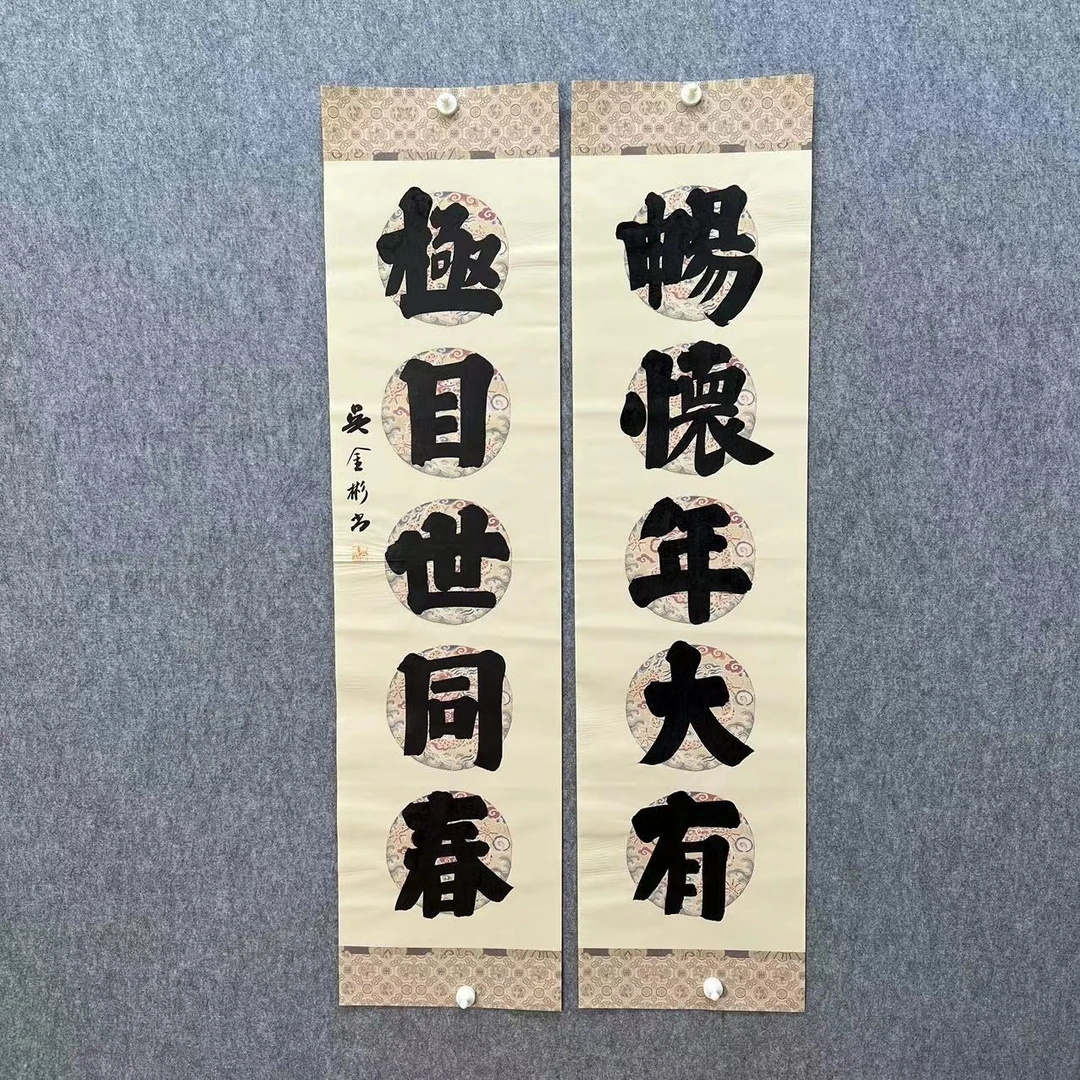 暢懷年大有
極目世同春
吳金彬书